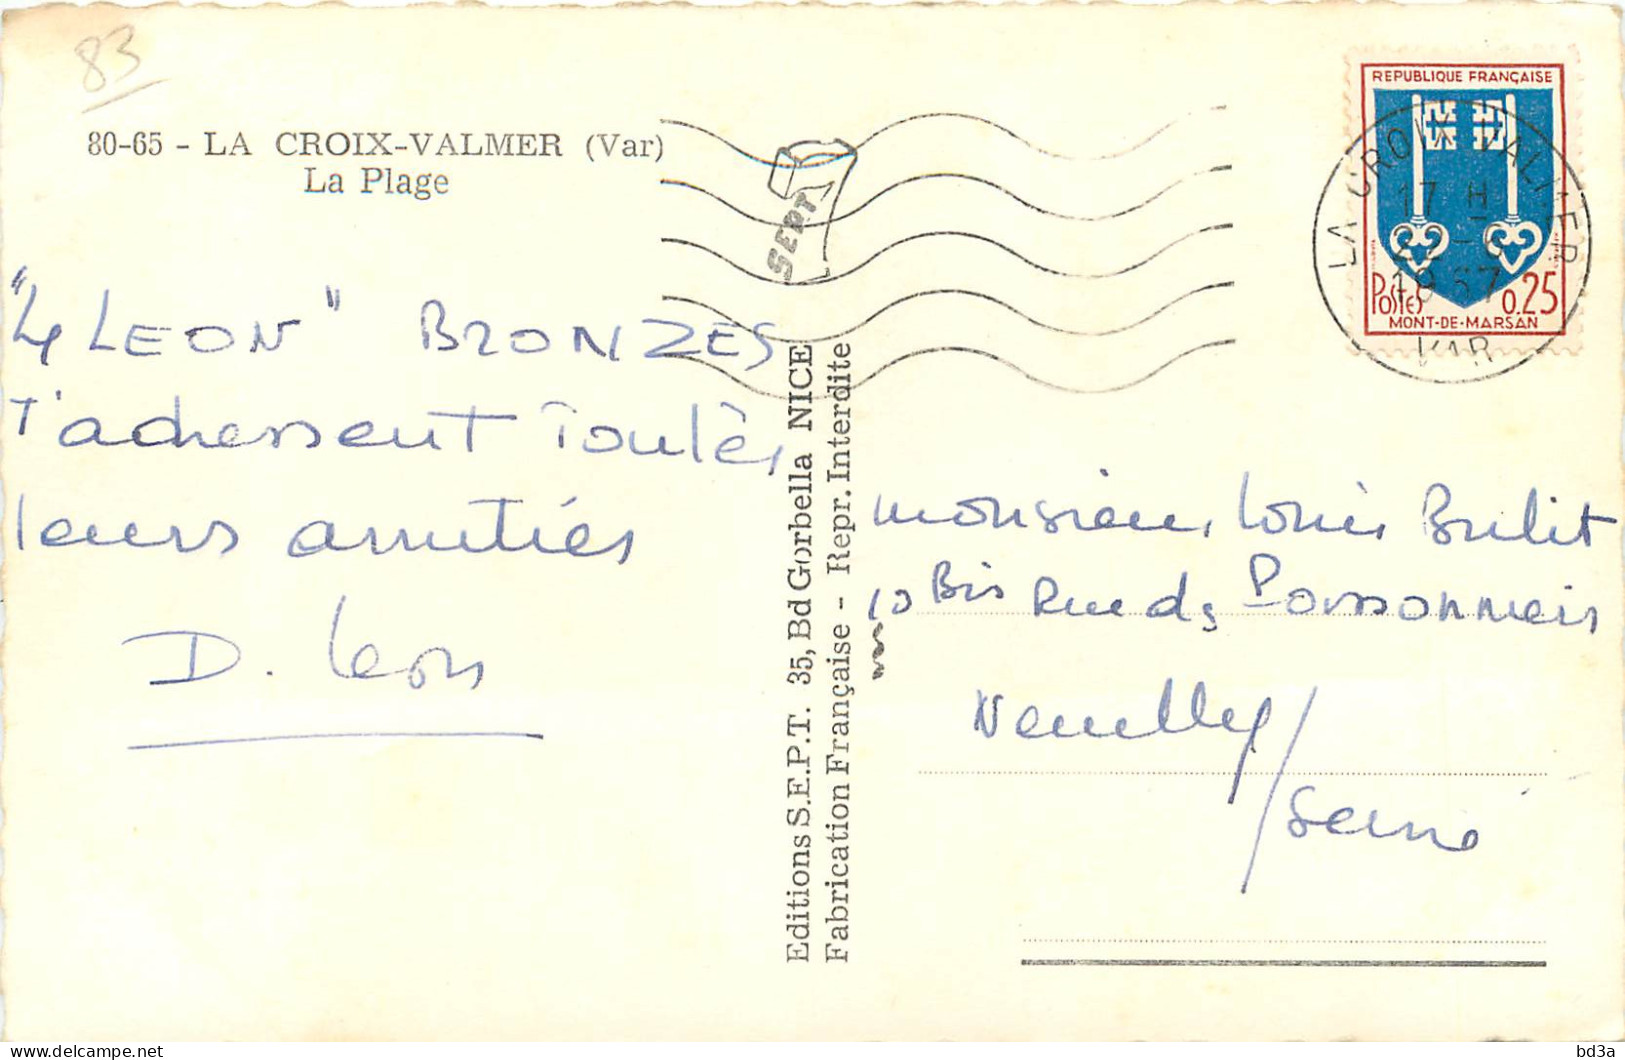 83
80-65 - LA CROIX-VALMER (Var)
La Plage
"4 LEON" BRONZES
T'adressent Toutes
leurs amitiés
D. Leon
SEPT
Editions S.E.P.T. 35, Bd Gorbella NICE
Fabrication Française - Repr. Interdite
REPUBLIQUE FRANÇAISE
POSTES 0.25
MONT-DE-MARSAN
LA CROIX VALMER
17 H
22-6
1967
VAR
Monsieur Louis Bulit
10 Bis Rue des Poissonniers
Neuilly
/Seine
bd3a